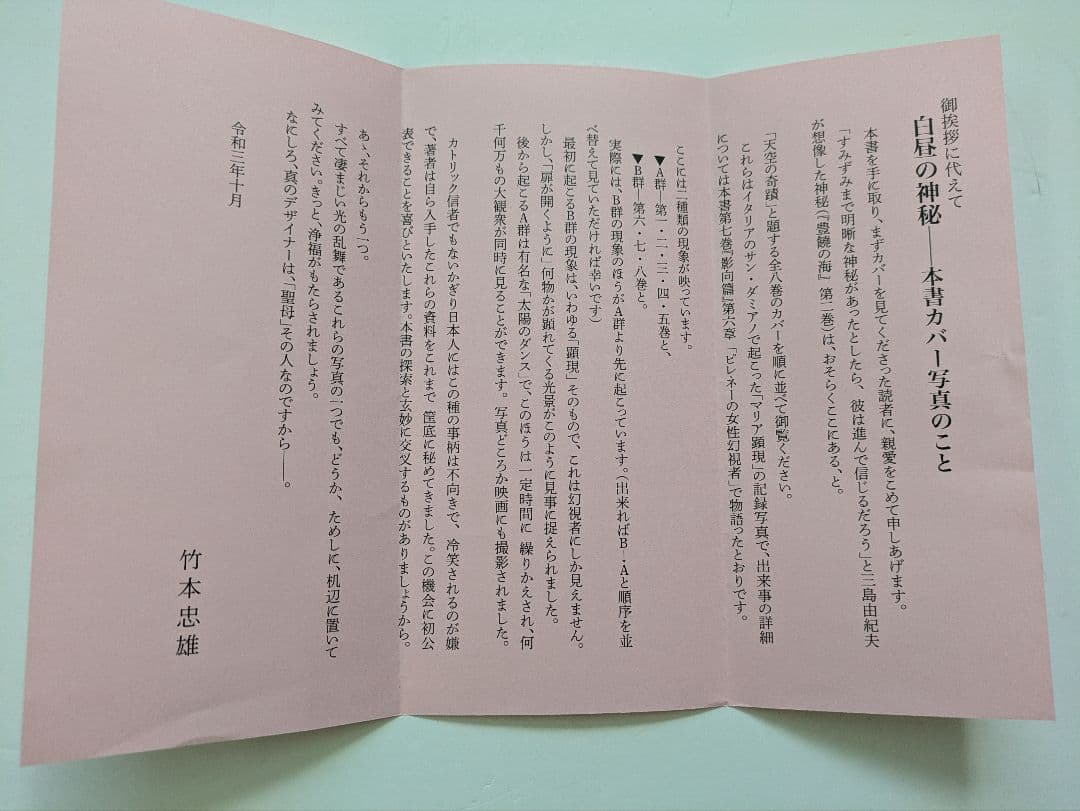 御挨拶に代えて
白昼の神秘──本書カバー写真のこと
本書を手に取り、まずカバーを見てくださった読者に、親愛をこめて申しあげます。
「すみずみまで明晰な神秘があったとしたら、彼は進んで信じるだろう」と三島由紀夫
が想像した神秘(『豊饒の海』第二巻)は、おそらくここにある、と。
「天空の奇蹟」と題する全八巻のカバーを順に並べて御覧ください。
これらはイタリアのサン・ダミアノで起こった「マリア顕現」の記録写真で、出来事の詳細
については本書第七巻『影向篇』第六章「ピレネーの女性幻視者」で物語ったとおりです。
ここには二種類の現象が映っています。
▼A群─第一・二・三・四・五巻と、
▼B群─第六・七・八巻と。
実際には、B群の現象のほうがA群より先に起こっています。(出来ればB─・Aと順序を並
べ替えて見ていただければ幸いです)
最初に起こるB群の現象は、いわゆる「顕現」そのもので、これは幻視者にしか見えません。
しかし、「扉が開くように」何物かが顕れてくる光景がこのように見事に捉えられました。
後から起こるA群は有名な「太陽のダンス」で、このほうは一定時間に繰りかえされ、何
千何万もの大観衆が同時に見ることができます。写真どころか映画にも撮影されました。
カトリック信者でもないかぎり日本人にはこの種の事柄は不向きで、冷笑されるのが嫌
で、著者は自ら入手したこれらの資料をこれまで筐底に秘めてきました。この機会に初公
表できることを喜びといたします。本書の探索と玄妙に交叉するものがありましょうから。
あゝ、それからもう一つ。
すべて凄まじい光の乱舞であるこれらの写真の一つでも、どうか、ためしに、机辺に置いて
みてください。きっと、浄福がもたらされましょう。
なにしろ、真のデザイナーは、「聖母」その人なのですから──。
令和三年十月
竹本忠雄